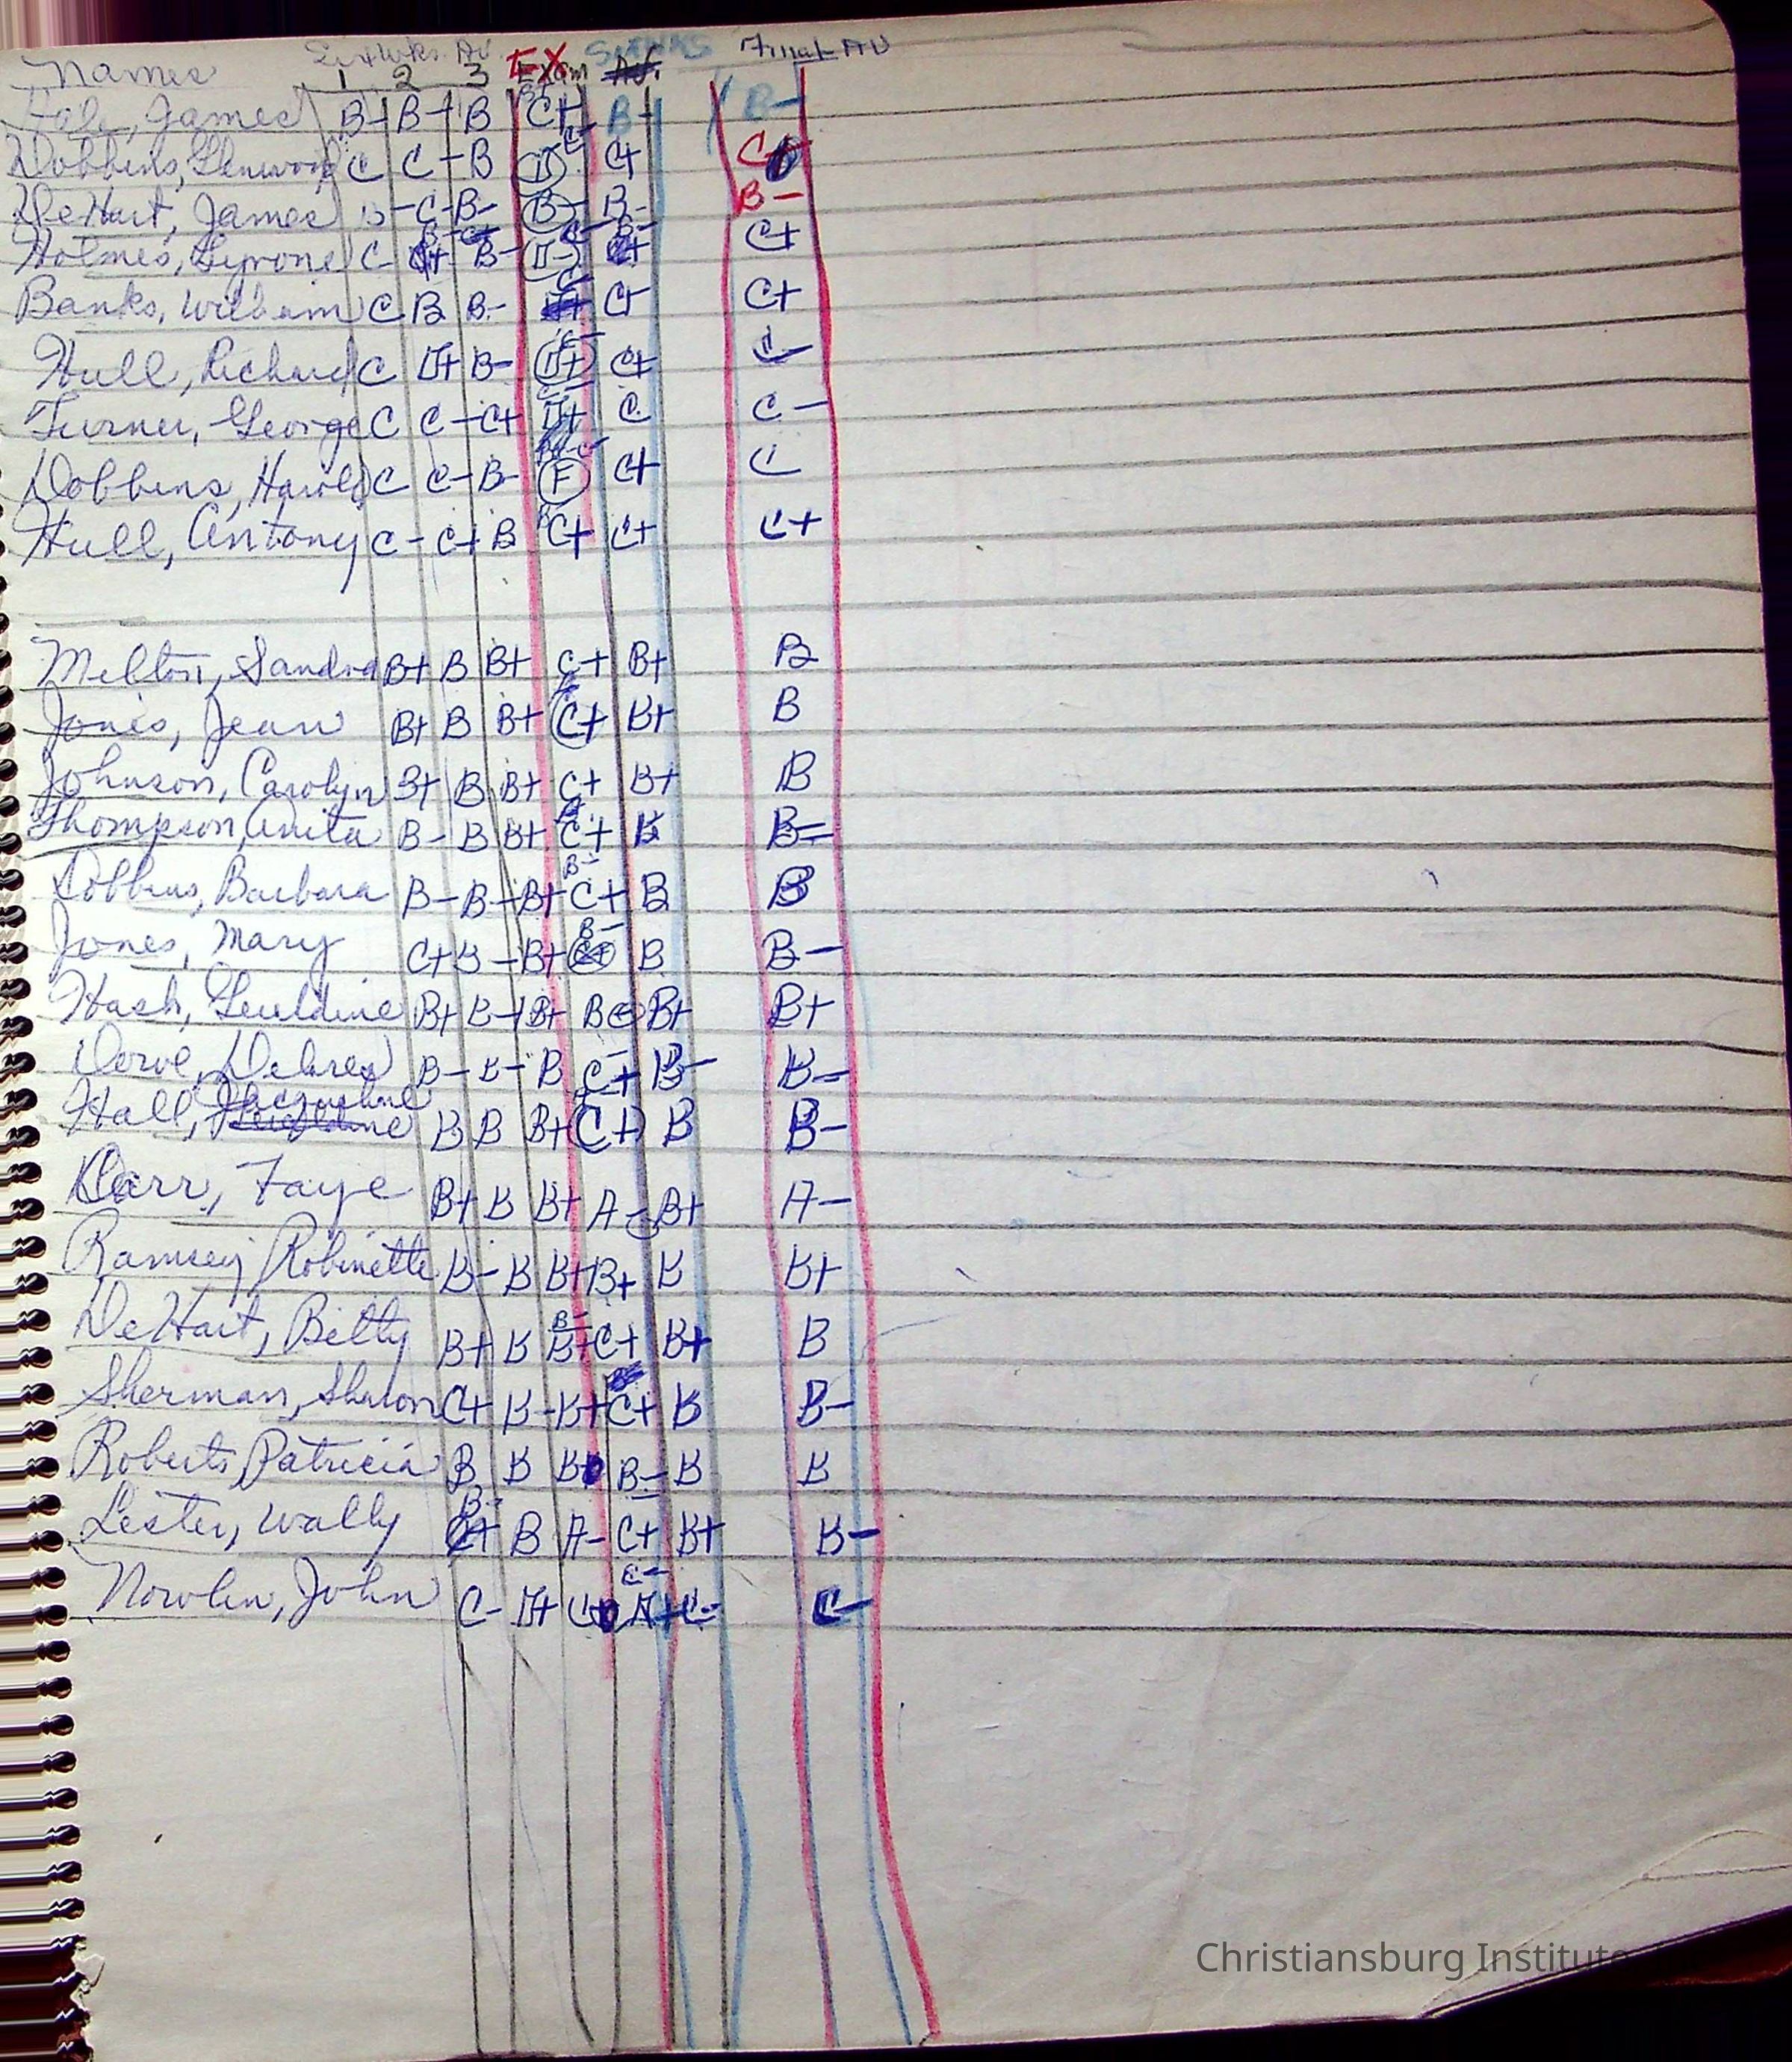 Names 1 2 3 EX Exam Av. Final AV
James B+ B+ B C+ B- B-
Dobbins, Glenwood C C- B D C- C+ C+
DeHart, James B- C- B- B- B- B-
Holmes, Tyrone C B- D- C- B- C+
Banks, William C B B- C- C+ C+
Hull, Richard C D+ B- D+ C- C+ C-
Turner, George C C- C+ D+ C- C C-
Dobbins, Harold C C- B- F C- C+ C
Hull, Antony C- C+ B C+ C+ C+
Melton, Sandra B+ B B+ C+ B+ B
Jones, Jean B+ B B+ C+ B+ B
Johnson, Carolyn B+ B B+ C+ B+ B
Thompson, Anita B- B B+ C+ B B-
Dobbins, Barbara B- B- B+ B- C+ B B
Jones, Mary C+ B- B+ B- C+ B B-
Hash, Geraldine B+ B- B+ B B+ B+
Delores B- B- B C+ B- B-
Hall, Jacqueline B B B+ C+ B B-
Carr, Faye B+ B B+ A- B+ A-
Ramsey, Robinette B- B B+ B+ B B+
DeHart, Betty B+ B B+ B- C+ B+ B
Sherman, Sharon C+ B- B+ C+ B B-
Roberts, Patricia B B B B- B B
Lester, Wally B- C+ B A- C+ B+ B-
Nowlin, John C- D+ C C- D+ C- C-
Christiansburg Institute